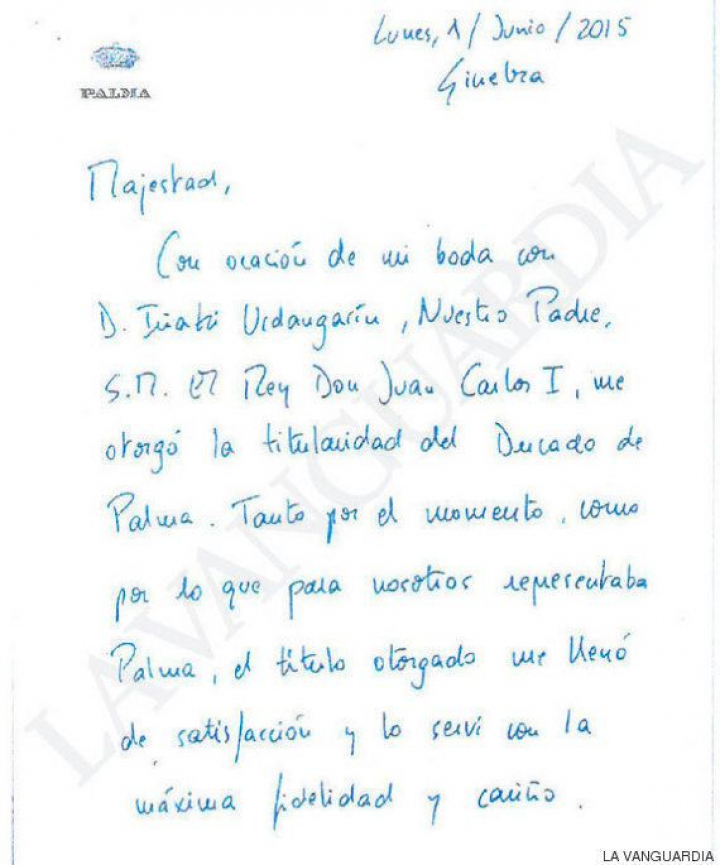 Lunes, 1 / Junio / 2015
Ginebra
PALMA
Majestad,
Con ocación de mi boda con
D. Iñaki Urdangarín, Nuestro Padre,
S.M. El Rey Don Juan Carlos I, me
otorgó la titularidad del Ducado de
Palma. Tanto por el momento, como
por lo que para nosotros representaba
Palma, el título otorgado me llenó
de satisfacción y lo serví con la
máxima fidelidad y cariño.
LA VANGUARDIA
LA VANGUARDIA